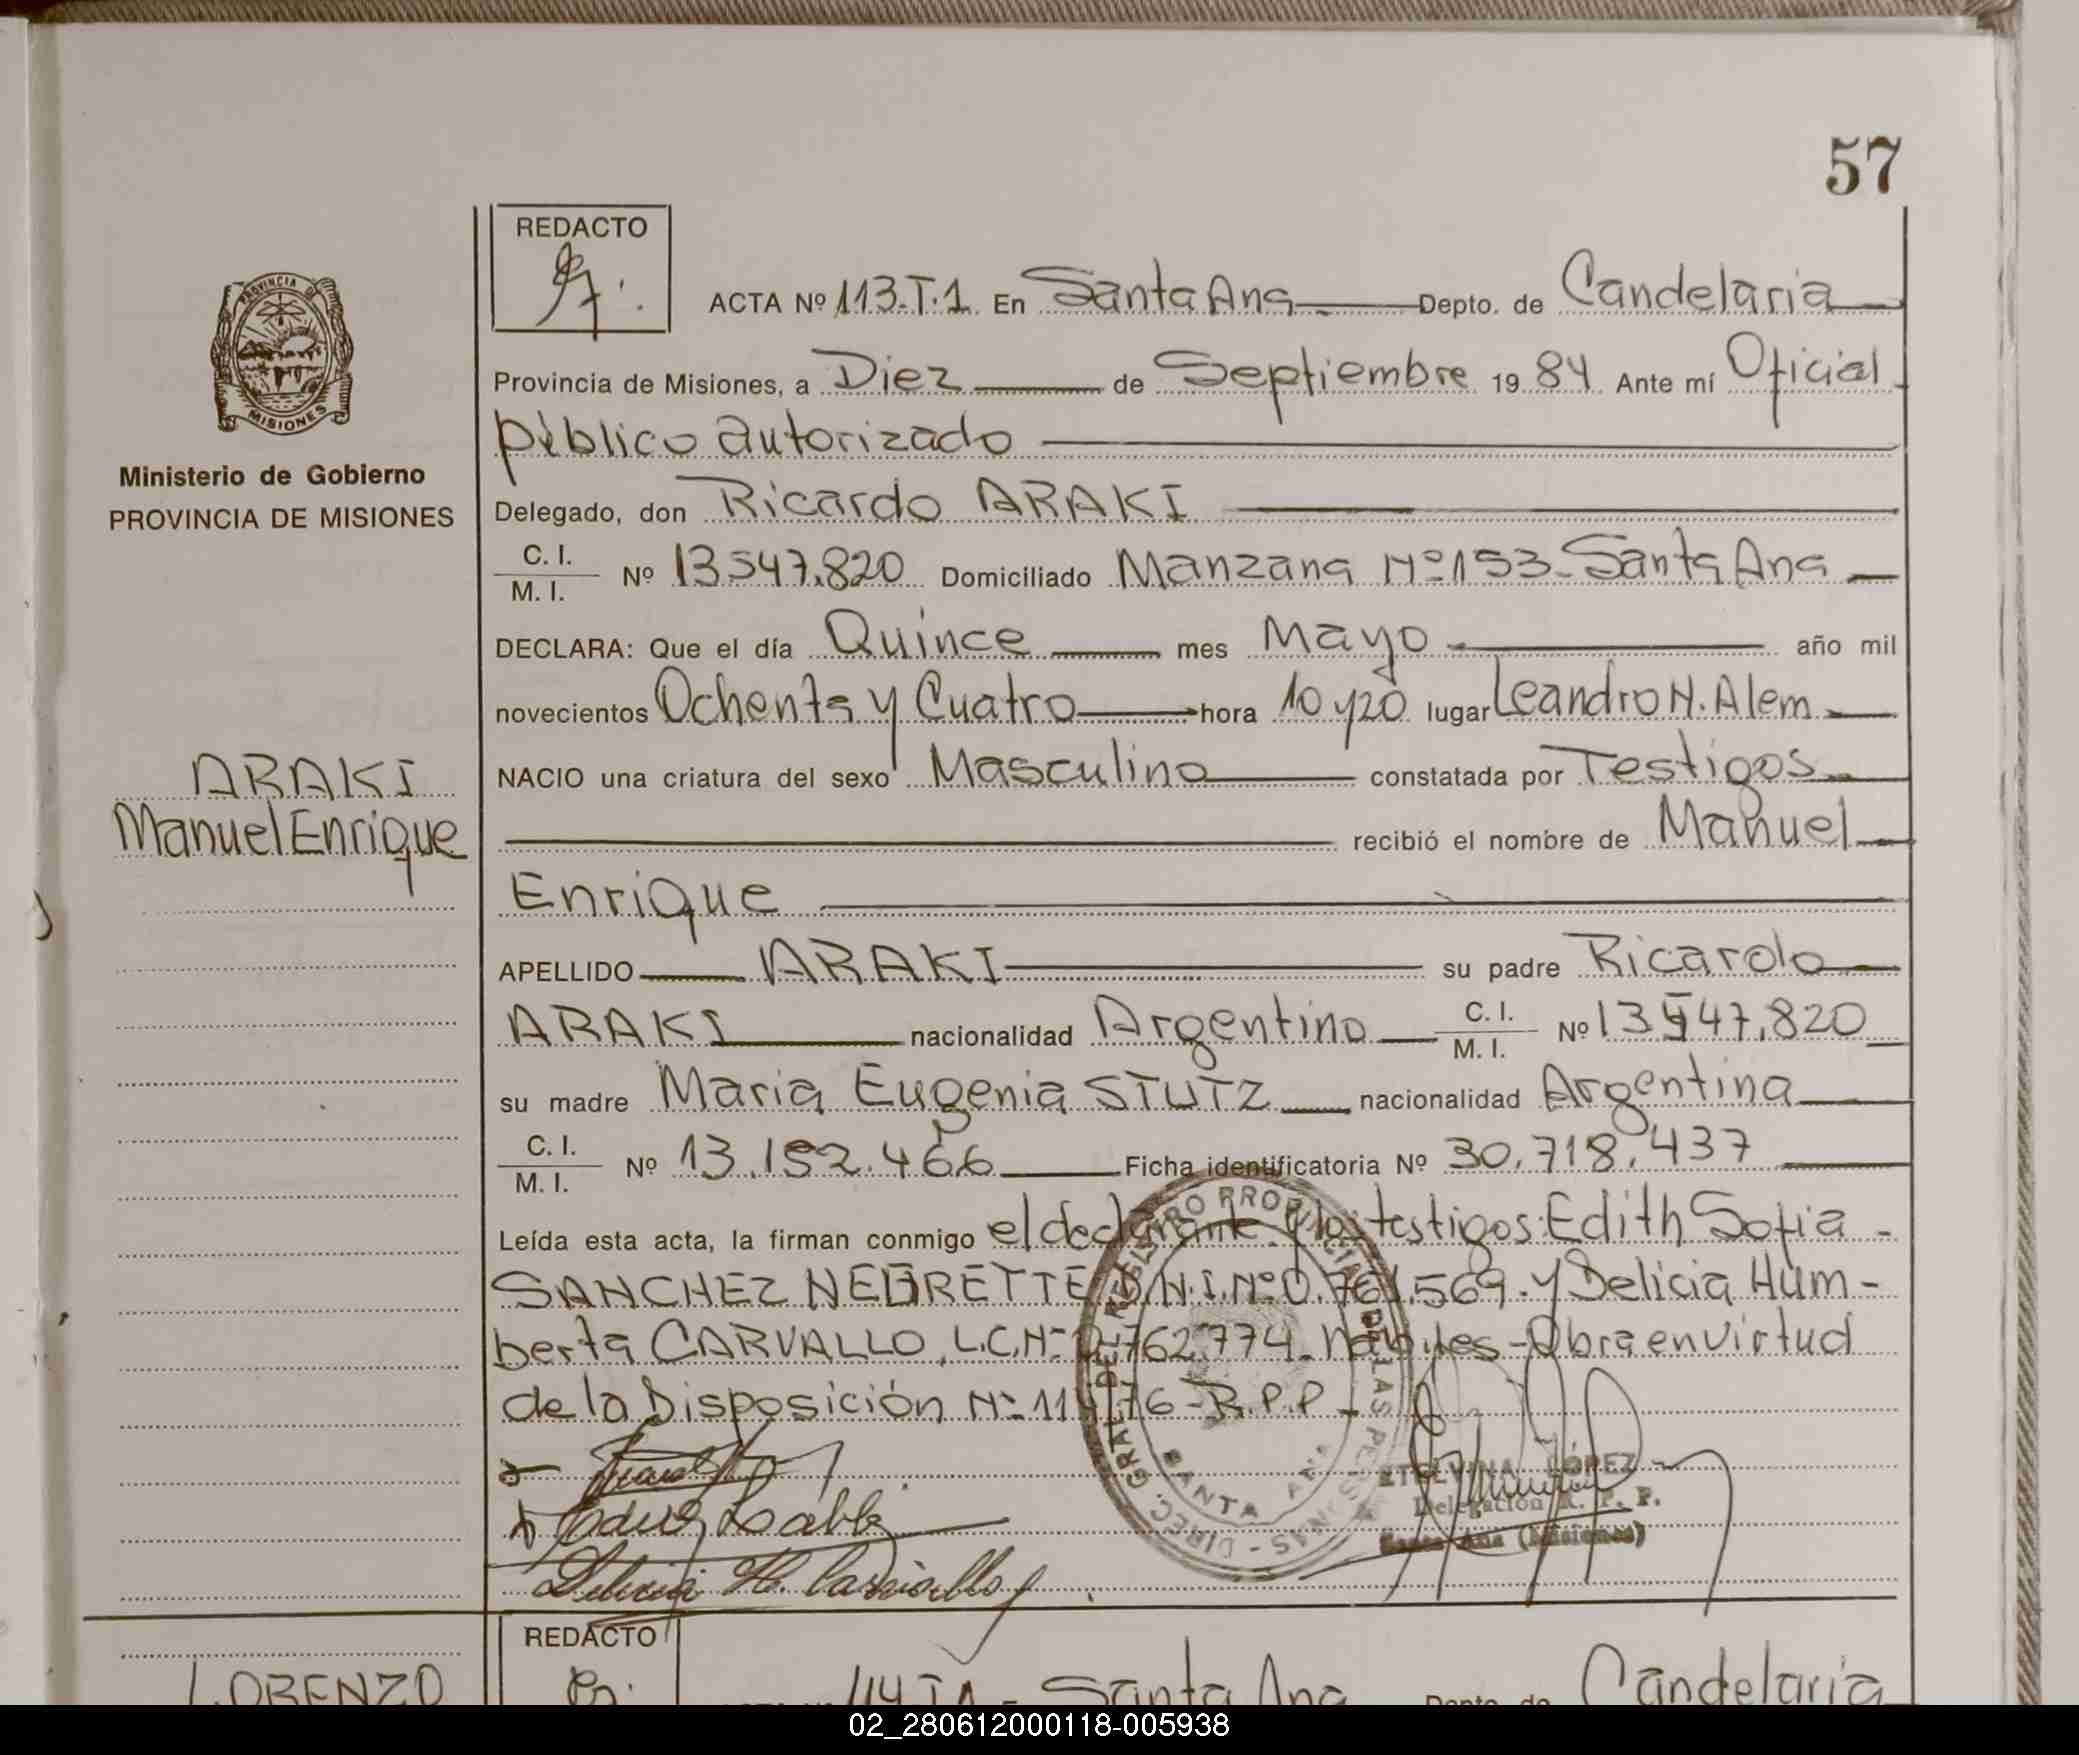 57
REDACTO
ACTA Nº 113-T.1. En Santa Ana Depto. de Candelaria
Provincia de Misiones, a Diez de Septiembre 19 84 Ante mí Oficial
público autorizado
Delegado, don Ricardo ARAKI
C. I.
M. I. Nº 13547.820 Domiciliado Manzana Nº 153 - Santa Ana
DECLARA: Que el día Quince mes Mayo año mil
novecientos Ochenta y Cuatro hora 10 y 20 lugar Leandro N. Alem
NACIO una criatura del sexo Masculino constatada por Testigos
recibió el nombre de Manuel
Enrique
APELLIDO ARAKI su padre Ricardo
ARAKI nacionalidad Argentino C. I. M. I. Nº 13547.820
su madre Maria Eugenia STUTZ nacionalidad Argentina
C. I.
M. I. Nº 13.152.466 Ficha identificatoria Nº 30.718.437
Leída esta acta, la firman conmigo el declarante y los testigos: Edith Sofia
SANCHEZ NEGRETTE D.N.I. Nº 0.761.569. y Delicia Hum-
berta CARVALLO, L.C. Nº 762.774. habiles - Obra en virtud
de la Disposición Nº 114/76 - R.P.P.
Delicia H. Carvallo
DIREC. GRAL. DEL REGISTRO PROVINCIAL DE LAS PERSONAS - SANTA ANA
ETELVINA LÓPEZ
Delegación R. P. P.
Santa Ana (Misiones)
PROVINCIA DE
MISIONES
Ministerio de Gobierno
PROVINCIA DE MISIONES
ARAKI
Manuel Enrique
REDACTO
LORENZO
114 T.1 - Santa Ana Depto. de Candelaria
02_280612000118-005938